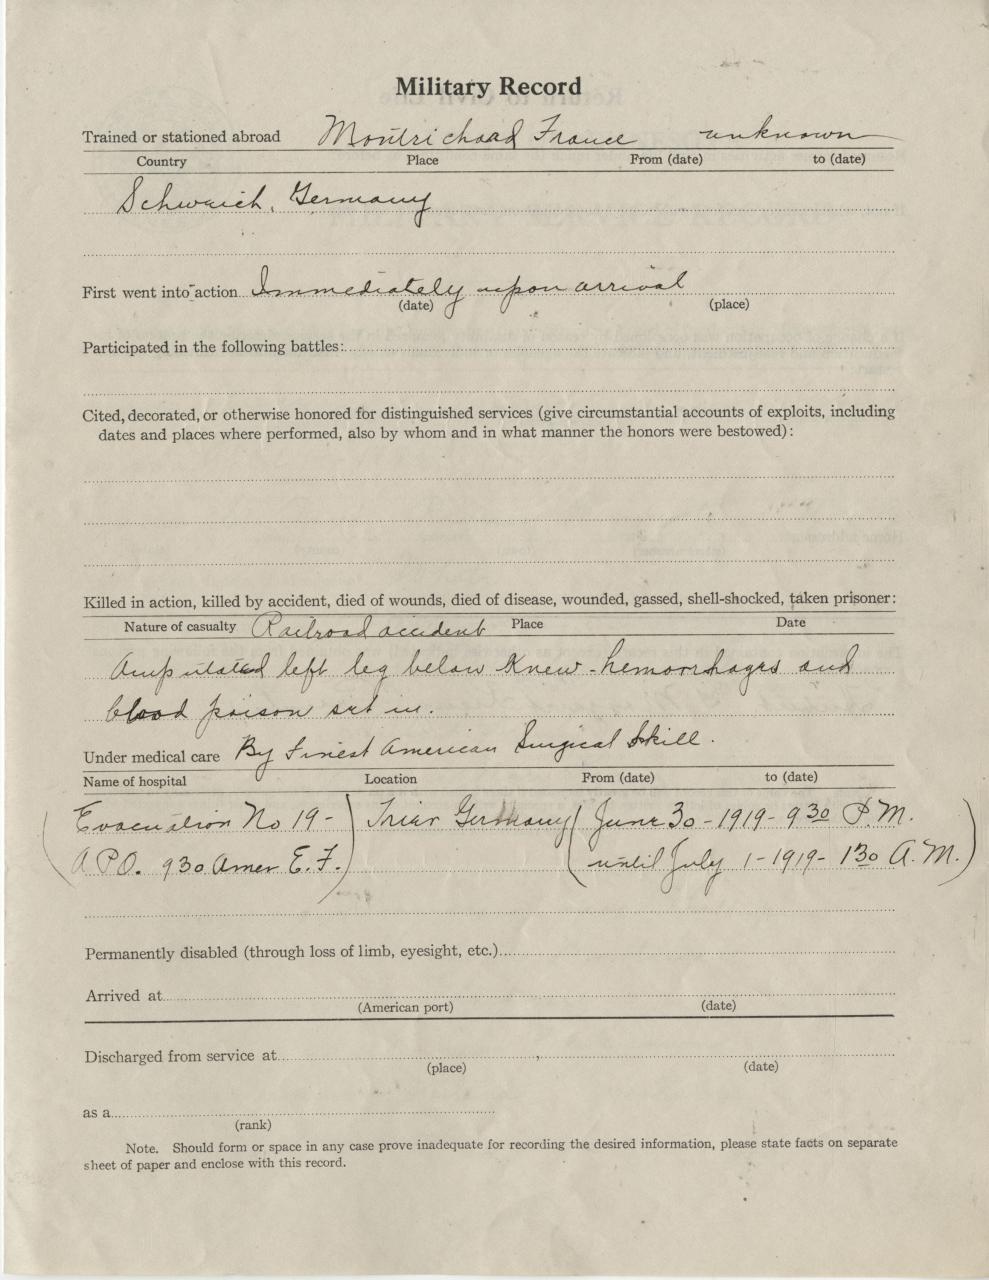 Military Record
Trained or stationed abroad Montrichaad France unknown
Country Place From (date) to (date)
Schweich, Germany
First went into action Immediately upon arrival
(date) (place)
Participated in the following battles:
Cited, decorated, or otherwise honored for distinguished services (give circumstantial accounts of exploits, including
dates and places where performed, also by whom and in what manner the honors were bestowed):
Killed in action, killed by accident, died of wounds, died of disease, wounded, gassed, shell-shocked, taken prisoner:
Nature of casualty Railroad accident Place Date
Amputated left leg below Knew - hemorrhages and
blood poison set in.
Under medical care By Finest American Surgical Skill.
Name of hospital Location From (date) to (date)
(Evacuation No 19- ) Trier Germany ( June 30 - 1919 - 9 30 P.M. )
A P.O. 930 Amer E. F. until July 1 - 1919 - 1 30 A.M.
Permanently disabled (through loss of limb, eyesight, etc.)
Arrived at
(American port) (date)
Discharged from service at
(place) (date)
as a
(rank)
Note. Should form or space in any case prove inadequate for recording the desired information, please state facts on separate
sheet of paper and enclose with this record.